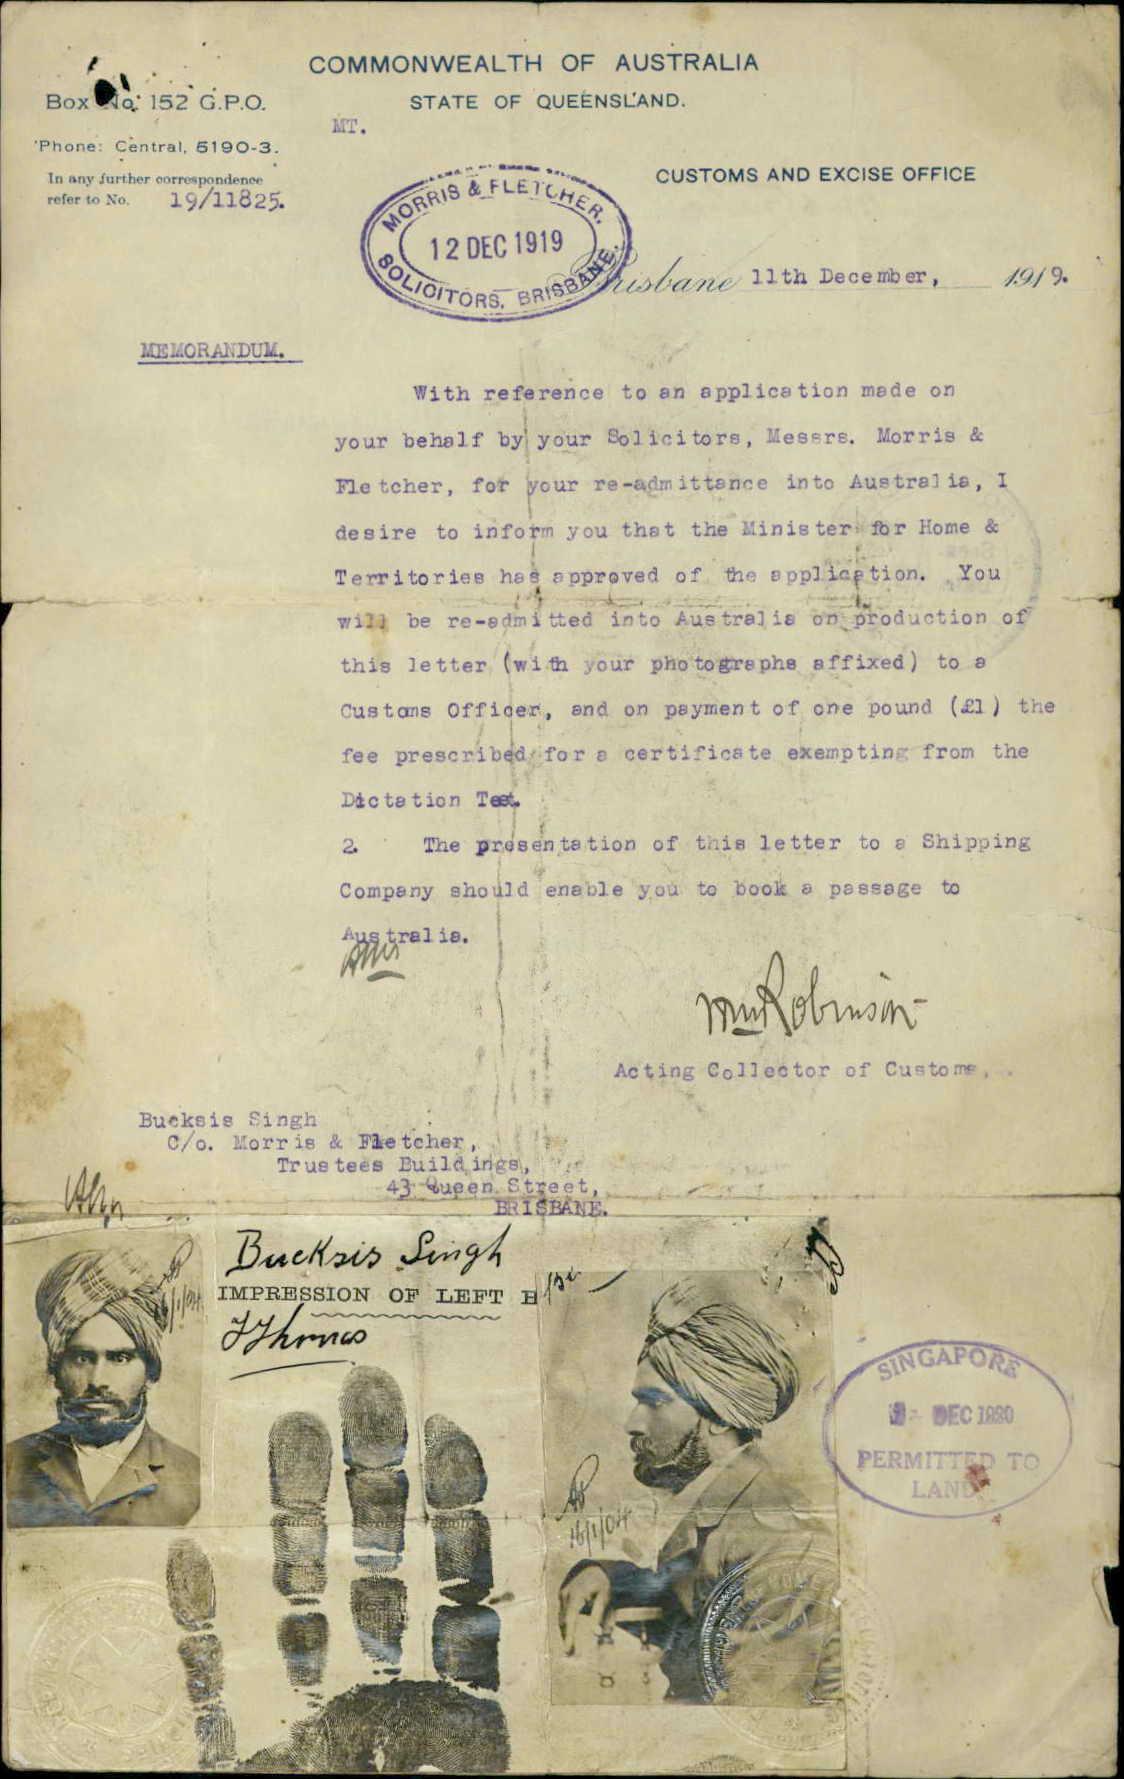 COMMONWEALTH OF AUSTRALIA
STATE OF QUEENSLAND.
Box No. 152 G.P.O.
MT.
'Phone: Central, 5190-3.
CUSTOMS AND EXCISE OFFICE
In any further correspondence
refer to No. 19/11825.
MORRIS & FLETCHER.
12 DEC 1919
SOLICITORS, BRISBANE.
Brisbane 11th December, 1919.
MEMORANDUM.
With reference to an application made on
your behalf by your Solicitors, Messrs. Morris &
Fletcher, for your re-admittance into Australia, I
desire to inform you that the Minister for Home &
Territories has approved of the application. You
will be re-admitted into Australia on production of
this letter (with your photographs affixed) to a
Customs Officer, and on payment of one pound (£1) the
fee prescribed for a certificate exempting from the
Dictation Test.
2. The presentation of this letter to a Shipping
Company should enable you to book a passage to
Australia.
WmRobinson
Acting Collector of Customs,
Bucksis Singh
C/o. Morris & Fletcher,
Trustees Buildings,
43 Queen Street,
BRISBANE.
Bucksis Singh
IMPRESSION OF LEFT
JThomas
16/1/04
SINGAPORE
DEC
PERMITTED TO
LAND